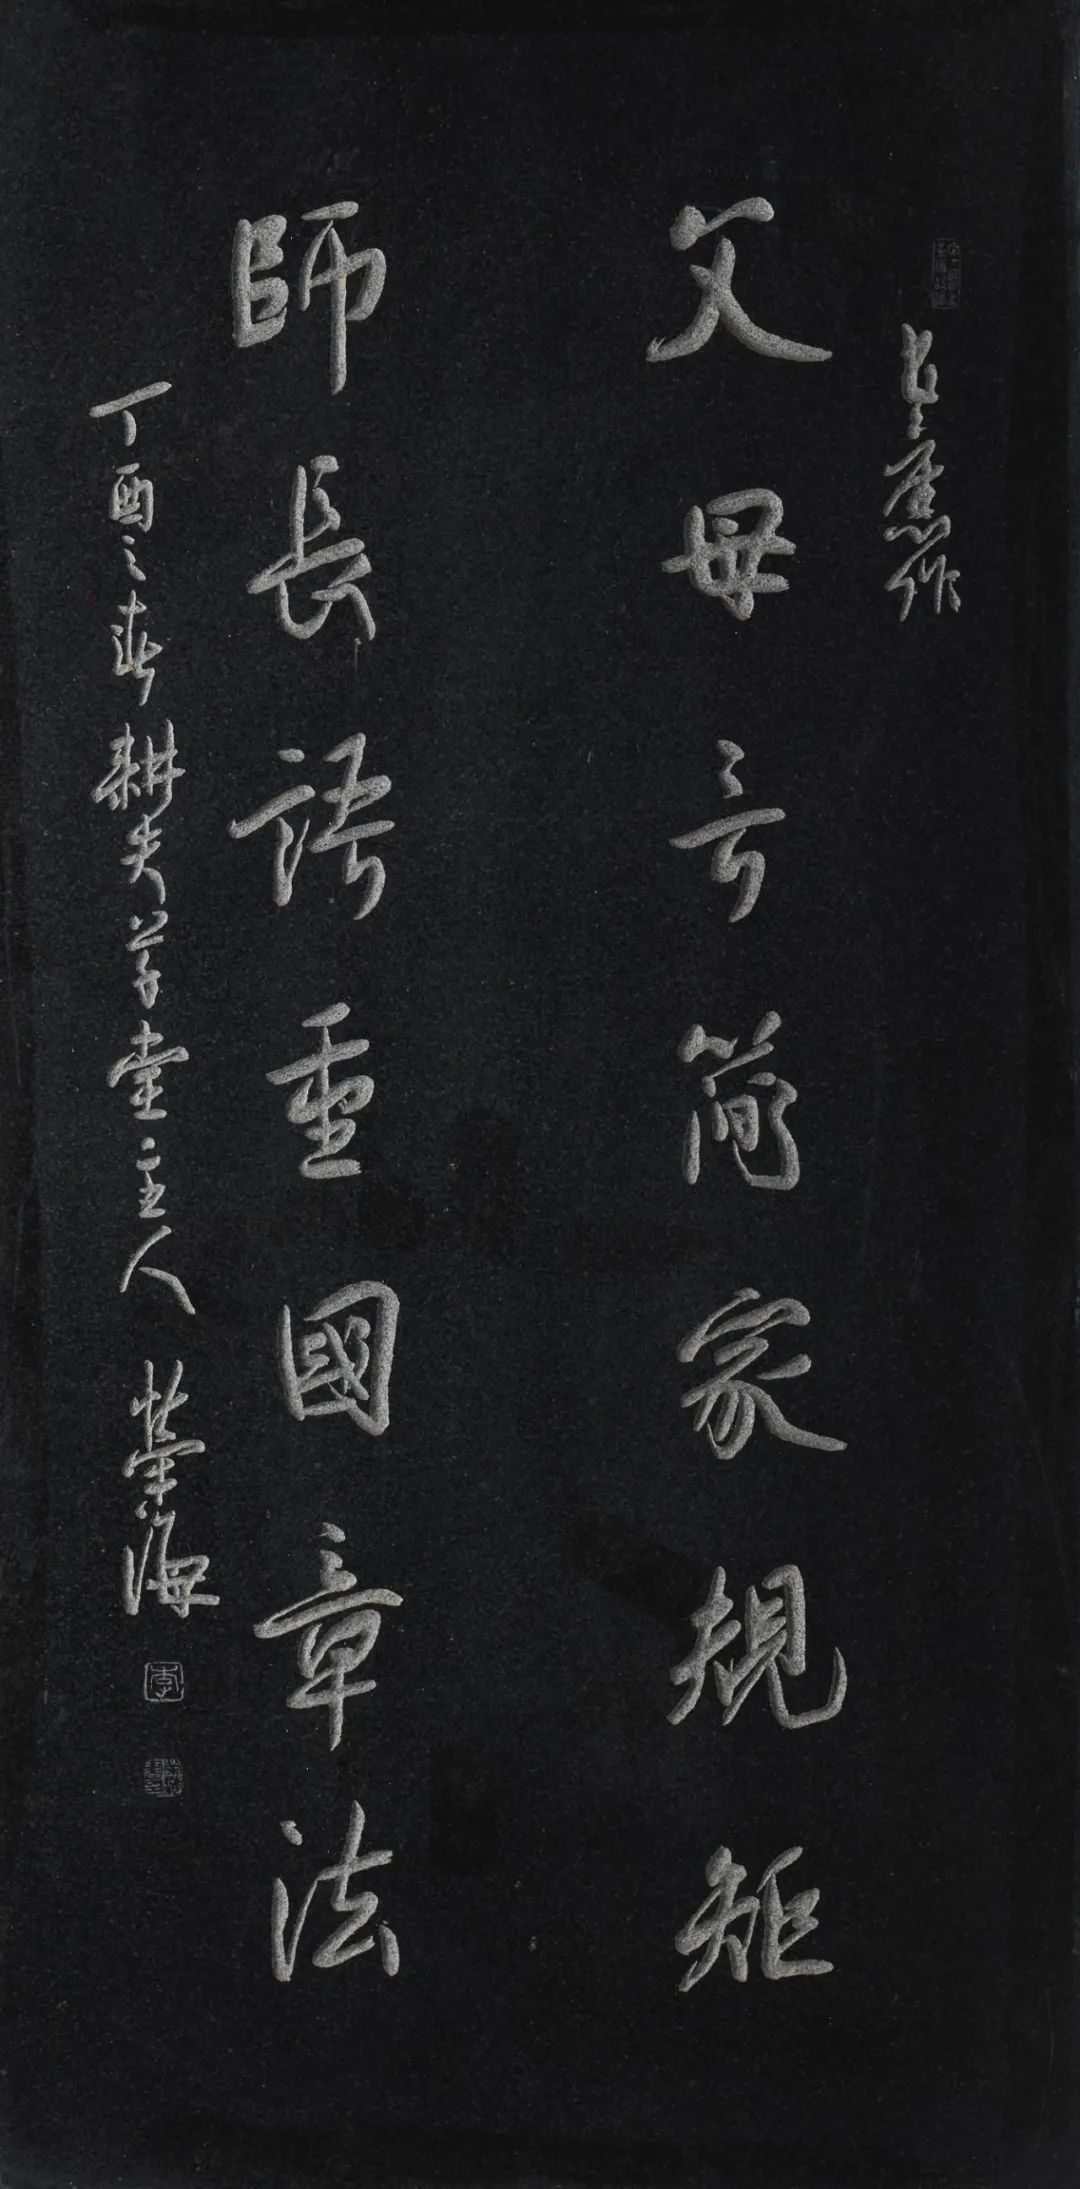 父母言简家規矩
師長語重國章法
丁酉之春耕夫草堂主人 榮海
李